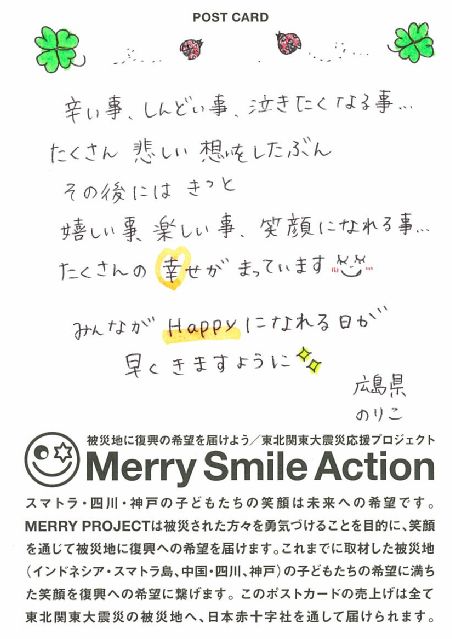 POST CARD
辛い事、しんどい事、泣きたくなる事…
たくさん 悲しい 想いをしたぶん
その後には きっと
嬉しい事、楽しい事、笑顔になれる事…
たくさんの 幸せが まっています
みんなが Happyになれる日が
早く きますように
広島県
のりこ
被災地に復興の希望を届けよう／東北関東大震災応援プロジェクト
Merry Smile Action
スマトラ・四川・神戸の子どもたちの笑顔は未来への希望です。
MERRY PROJECTは被災された方々を勇気づけることを目的に、笑顔
を通じて被災地に復興への希望を届けます。これまでに取材した被災地
（インドネシア・スマトラ島、中国・四川、神戸）の子どもたちの希望に満ち
た笑顔を復興への希望に繋げます。このポストカードの売上げは全て
東北関東大震災の被災地へ、日本赤十字社を通して届けられます。